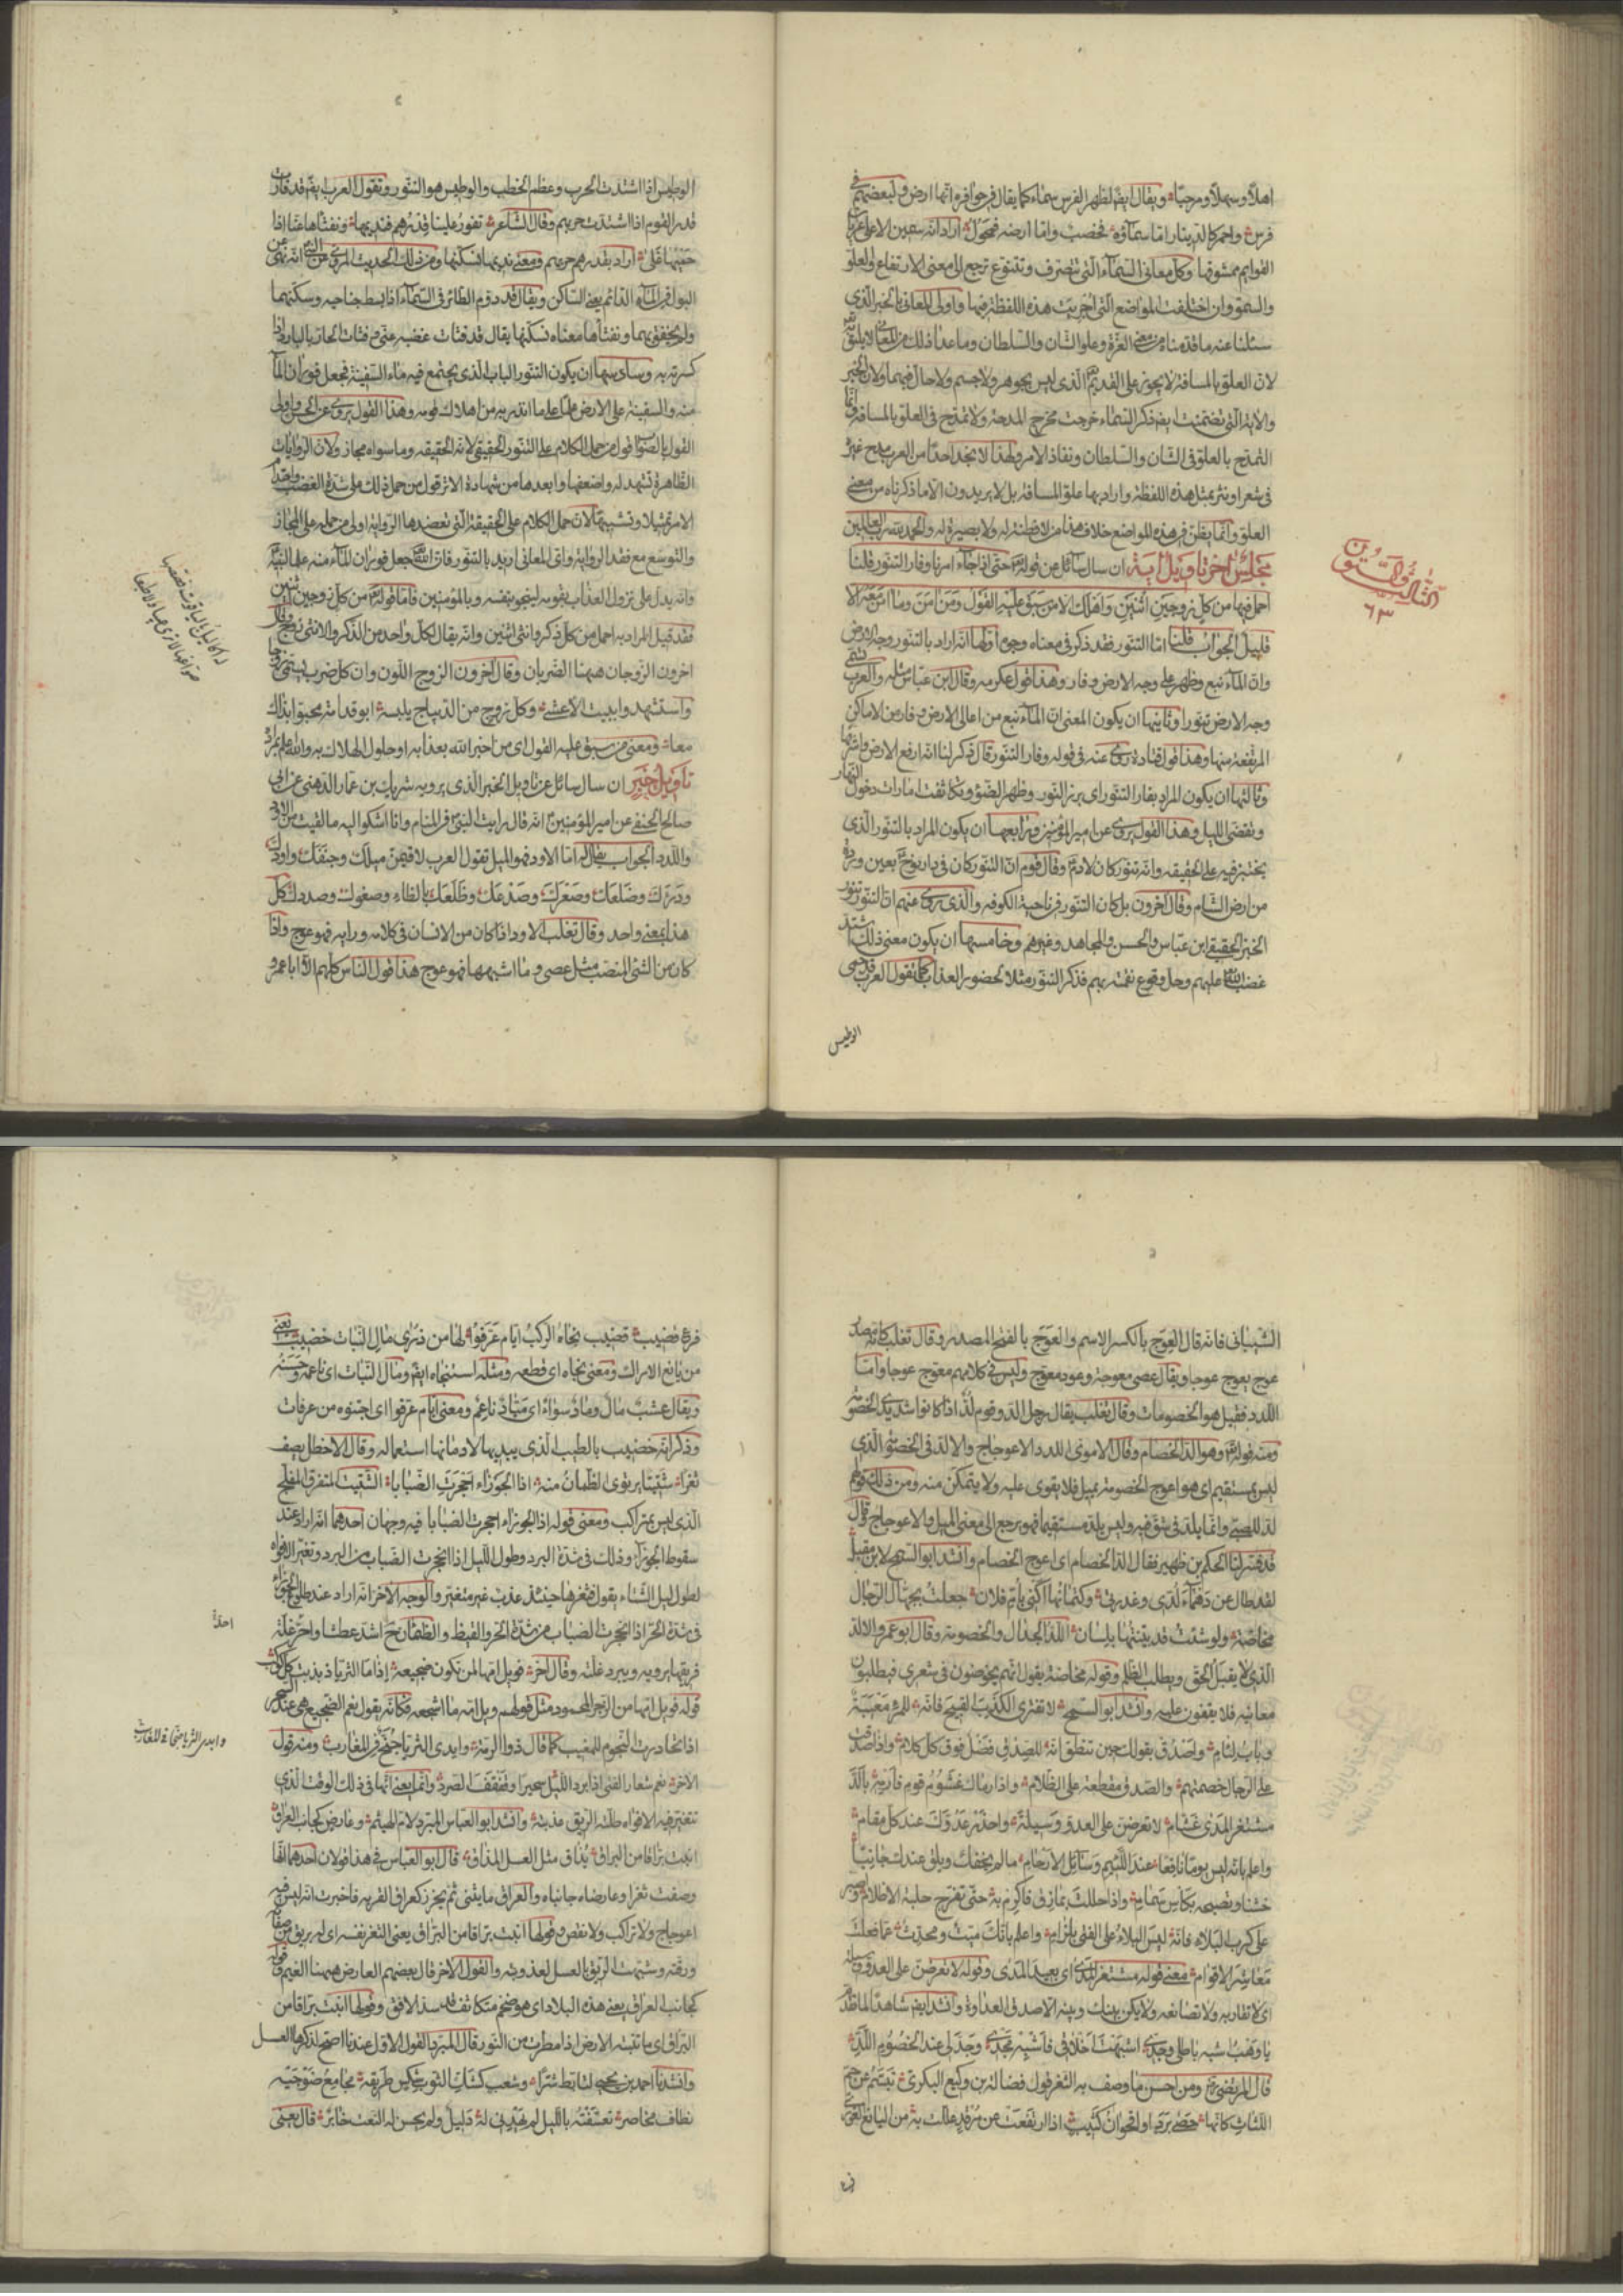 اهلا وسهلا ومرحبا ويقال ايضا لظهر الفرس سماء كما يقال في حوافره انها ارض ولبعضهم في
فرس واحمر كالدينار اما سماؤه فخصب واما ارضه فمحول اراد انه سمين الاعلى عريان
القوايم ممشوقها وكل معاني السماء التي تتصرف وتتنوع ترجع الى معنى الارتفاع والعلو
والسمو وان اختلفت المواضع التي اجريت هذه اللفظة فيها واولى المعاني بالخبر الذي
سئلنا عنه ما قدمنا من معنى العزة وعلو الشان والسلطان وما عدا ذلك من المعاني لا يليق به تع
لان العلو بالمسافة لا يجوز على القديم تع الذي ليس بجوهر ولا جسم ولا حال فيهما ولان الخبر
والاية التي تضمنت ايضا ذكر السماء خرجت مخرج المدحة ولا تمدح في العلو بالمسافة وانما
التمدح بالعلو في الشان والسلطان ونفاذ الامر ولهذا لا تجد احدا من العرب مدح غيره
في شعر او نثر بمثل هذه اللفظة واراد بها علو المسافة بل لا يريدون الا ما ذكرناه من معنى
العلو وانما يظن في هذه المواضع خلاف هذا من لا فطنة له ولا بصيرة له والحمد لله رب العالمين
مجلس اخر تاويل اية ان سال سائل عن قوله تع حتى اذا جاء امرنا وفار التنور قلنا
احمل فيها من كل زوجين اثنين واهلك الا من سبق عليه القول ومن امن وما امن معه الا
قليل الجواب قلنا اما التنور فقد ذكر في معناه وجوه اولها انه اراد بالتنور وجه الارض
وان الماء نبع وظهر على وجه الارض وفار وهذا قول عكرمه وقال ابن عباس مثله والعرب تسمي
وجه الارض تنورا وثانيها ان يكون المعنى ان الماء نبع من اعالي الارض وفار من الاماكن
المرتفعة منها وهذا قول قتادة روي عنه في قوله وفار التنور قال ذكر لنا انه ارفع الارض واشرفها
وثالثها ان يكون المراد بفار التنور اي برز النور وظهر الضوء وتكاثفت امارات دخول النهار
وتقضى الليل وهذا القول يروى عن امير المؤمنين ع ورابعها ان يكون المراد بالتنور الذي
يختبز فيه على الحقيقه وانه تنور كان لادم ع وقال قوم ان التنور كان في دار نوح ع بعين وردة
من ارض الشام وقال اخرون بل كان التنور في ناحية الكوفه والذي روي عنهم ان التنور تنور
الخبز الحقيقي ابن عباس والحسن والمجاهد وغيرهم وخامسها ان يكون معنى ذلك اشتد
غضب الله تع عليهم وحل وقوع نقمته بهم فذكر التنور مثلا لحضور العذاب كما تقول العرب قد حمي
الوطيس
الثالث والستون
٦٣
الوطيس اذا اشتدت الحرب وعظم الخطب والوطيس هو التنور وتقول العرب ايضا قد فارت
قدر القوم اذا اشتدت حربهم وقال الشاعر تفور علينا قدرهم فنديمها ونفثاها عنا اذا
حميها غلى اراد بقدرهم حربهم ومعنى نديمها نسكنها ومن ذلك الحديث المروي عن النبي ع انه نهى عن
البول في الماء الدائم يعني الساكن ويقال قد دوم الطائر في السماء اذا بسط جناحيه وسكنهما
ولم يخفق بهما ونفثاها معناه نسكنها يقال قد فثات غضبه عني وفثات الحار بالبارد اذا
كسرته به وسادسها ان يكون التنور الباب الذي يجتمع فيه ماء السفينة فجعل فوران الماء
منه والسفينة على الارض علما على ما انذر به من اهلاك قومه وهذا القول يروى عن الحسن واولى
القول بالصواب قول من حمل الكلام على التنور الحقيقي لانه الحقيقه وما سواه مجاز ولان الروايات
الظاهرة تشهد له واضعفها وابعدها من شهادة الاثر قول من حمل ذلك على شدة الغضب واحتداد
الامر تمثيلا وتشبيها لان حمل الكلام على الحقيقة التي تعضدها الرواية اولى من حمله على المجاز
والتوسع مع فقد الرواية واي المعاني اريد بالتنور فان الله تع جعل فوران الماء منه علما لنبيه
وانه يدل على نزول العذاب بقومه لينجو بنفسه وبالمؤمنين فاما قوله تع من كل زوجين اثنين
فقد قيل المراد به احمل من كل ذكر وانثى اثنين وانه يقال لكل واحد من الذكر والانثى زوج وقال
اخرون الزوجان ههنا الضربان وقال اخرون الزوج اللون وان كل ضرب يسمى زوجا
واستشهدوا ببيت الاعشى وكل زوج من الديباج يلبسه ابو قدامة محبوا بذاك
معا ومعنى من سبق عليه القول اي من اخبر الله بعذابه او حلول الهلاك به والله اعلم بمراده
تاويل خبر ان سال سائل عن تاويل الخبر الذي يرويه شريك بن عمار الدهني عن ابي
صالح الحنفي عن امير المؤمنين ع انه قال رايت النبي ع في المنام وانا اشكو اليه ما لقيت من الاود
واللدد الجواب يقال اما الاود فهو الميل تقول العرب لاقيمن ميلك وجنفك واودك
ودراك وضلعك وصعرك وصدغك وظلعك بالظاء وصغوك وصددك كل
هذا بمعنى واحد وقال تغلب الاود اذا كان من الانسان في كلامه ورايه فهو عوج واذا
كان من الشئ المنتصب مثل عصى وما اشبهها فهو عوج هذا قول الناس كلهم الا ابا عمرو
الشيباني فانه قال العوج بالكسر الاسم والعوج بالفتح المصدر وقال تغلب كانه مصدر
عوج يعوج عوجا ويقال عصى معوجة وعود معوج وليس في كلامهم معوج عوجا واما
اللدد فقيل هو الخصومات وقال تغلب يقال رجل الد وقوم لد اذا كانوا شديدي الخصومة
ومنه قوله تع وهو الد الخصام وقال الاموي اللدد الاعوجاج والالد في الخصومة الذي
ليس بمستقيم اي هو اعوج الخصومة يميل فلا يقوى عليه ولا يتمكن منه ومن ذلك قولهم
لد للصبي وانما يلد في شق فيه وليس يلد مستقيما فهو يرجع الى معنى الميل والاعوجاج قال
قد فسر لنا الحكم بن ظهير فقال الد الخصام اي اعوج الخصام وانشد ابو السمح لابن مقبل
لقد طال عن دهماء لدي وعذرتي وكتمانها اكني بام فلان جعلت لجهال الرجال
مخاضة ولو شئت قد بينتها بلسان اللد الجدال والخصومة وقال ابو عمرو الالد
الذي لا يقبل الحق ويطلب الظلم وقوله مخاضة يقول انهم يخوضون في شعري فيطلبون
معانيه فلا يقفون عليه وانشد ابو السمح لا تفتري الكذب القبيح فانه للمرء معيبة
وباب لئام واصدق بقولك حين تنطق انه للصدق فضل فوق كل كلام واذا صدقت
على الرجال خصمتهم والصدق مقطعة على الظلام واذا رماك غشوم قوم فارمه بالد
مشتغر المدى غشام لا تعرضن على العدو وسيلة واحذر عدوك عند كل مقام
واعلم بانه ليس يوما نافعا عند اللئيم وسائل الارحام ما لم يخفك ويلق عندك جانبا
خشنا وتصبحه بكاس سمام واذا حللت بمازق فاكرم به حتى تفرج حلبة الاظلام واصبر
على كرب البلاء فانه ليس البلاء على الفتى بلزام واعلم بانك ميت ومحدث عما فعلت
معاشر الاقوام معنى قوله مشتغر المدى اي بعيد المدى وقوله لا تعرضن على العدو وسيلة
اي لا تقاربه ولا تصانعه ولا يكن بينك وبينه الا صدق العداوة وانشد ايضا شاهدا لما تقدم
يا وهب اشبه باطلي وجدي اشبهت اخلاقي فاشبه مجدي وجدلي عند الخصوم اللد
قال المرتضى رض ومن احسن ما وصف به الثغر قول فضالة بن وكيع البكري تبسم عن حم
اللثات كانها حصى برد او اقحوان كثيب اذا ارتفعت عن مرقد علت به من اليانع الغوري
فرع قضيب قضيب نجاه الركب ايام عرفوا لها من ذرى مال النبات خضيب يعني
من يانع الاراك ومعنى نجاه اي قطعه ومثله استنجاه ايضا ومال النبات اي ناعمه وحسنه
ويقال عشب مال وماد سواء اي مياد ناعم ومعنى ايام عرفوا اي اجتنوه من عرفات
وذكر انه خضيب بالطيب الذي بيديها لادمانها استعماله وقال الاخطل يصف
ثغرا شتيتا يرتوي الظمان منه اذا الجوزاء احجرت الضبابا الشتيت المتفرق المفلج
الذي ليس بمتراكب ومعنى قوله اذا الجوزاء احجرت الضبابا فيه وجهان احدهما انه اراد عند
سقوط الجوزاء وذلك في شدة البرد وطول الليل اذا انجحرت الضباب من البرد وتغير الافواه
لطول ليل الشتاء يقول فثغرها حينئذ عذب غير متغير والوجه الاخر انه اراد عند طلوع الجوزاء
في شدة الحر اذا انجحرت الضباب من شدة الحر والقيظ والظمان ح اشد عطشا واحر غلة
فريقها يرويه ويبرد غلته وقال اخر فويل امها لمن تكون ضجيعه اذا ما الثريا ذبذبت كل كوكب
قوله فويل امها من الزجر المحمود مثل قولهم ويل امه ما اشجعه فكانه يقول نعم الضجيع هي عند السحر
اذا تحادرت النجوم للمغيب كما قال ذو الرمة وايدي الثريا جنح في المغارب ومنه قول
الاخر نعم شعار الفتى اذا برد الليل سحيرا وقفقف الصرد وانما يعني انها في ذلك الوقت الذي
تتغير فيه الافواه طيبة الريق عذبته وانشد ابو العباس المبرد لام الهيثم وعارض كجانب العراق
انبت براقا من البراق يذاق مثل العسل المذاق قال ابو العباس في هذا قولان احدهما انها
وصفت ثغرا وعارضاه جانباه والعراق ما يثنى ثم يخرز كعراق القربه فاخبرت انه ليس فيه
اعوجاج ولا تراكب ولا نقص وقولها انبت براقا من البراق يعني الثغر نفسه اي له بريق من صفائه
ورقته وشبهت الريق بالعسل لعذوبته والقول الاخر قال بعضهم العارض ههنا الغيم وقوله
كجانب العراق يعني هذه البلاد اي هو ضخم متكاثف قد سد الافق وقولها انبت براقا من
البراق اي ما تنبته الارض اذا مطرت من النور قال المبرد والقول الاول عندنا اصح لذكرها العسل
وانشدنا احمد بن يحيى لتابط شرا وشعب كشك الثوب شكس طريقه مجامع ضوجيه
نطاف مخاصر تعسفته بالليل لم يهدني له دليل ولم يحسن له النعت خابر قال يعني